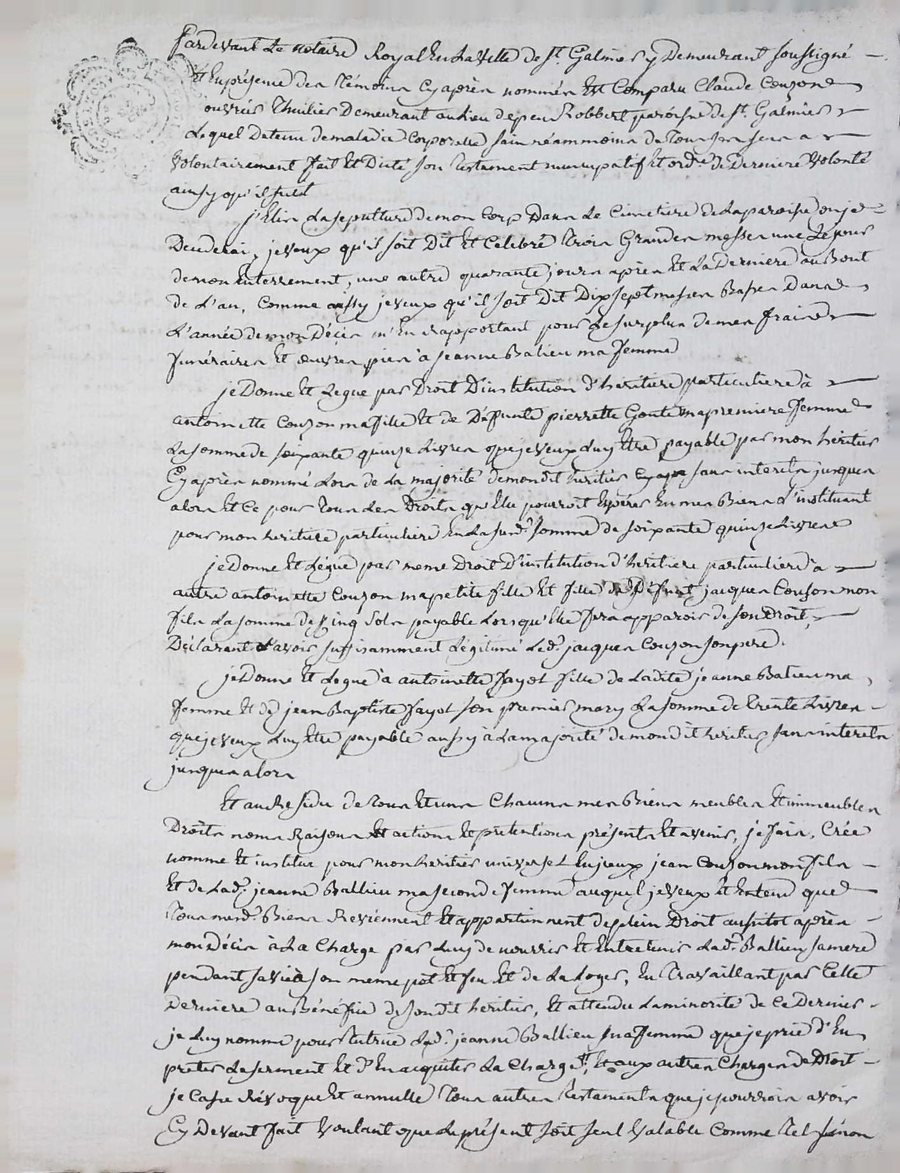 Pardevant Le notaire Royal En La Ville de St. Galmier y Demeurant soussigné
Et En présence des Témoins Cy après nommés Est Comparu Claude Couzon
ouvrier Thuilier Demeurant au Lieu de peu Robbert paroisse de St. Galmier
Lequel Detenu de maladie Corporelle sain néammoins de Tous ses sens a
Volontairement fait Et Dicté son Testament nuncupatif Et ordre de Derniere Volonté
ainsy qu'il suit
j'Elis La sepulture de mon Corps Dans Le Cimetiere de La paroisse ou je
Deccderai, je veux qu'il soit Dit Et Celebré Trois Grandes messes une Le jour
de mon Enterrement, une autre quarante jours après Et La Derniere au Bout
de L'an, Comme aussy je veux qu'il soit Dit Dix sept messes Basses Dans
L'année de mon Décès m'En Rapportant pour Le surplus de mes fraix
funéraires Et œuvres pies à jeanne Balieu ma femme
je Donne Et Legue par Droit D'institution d'heritiere particuliere à
antoinette Couzon ma fille Et de Deffunte pierrette Gonte ma premiere femme
La somme de soixante quinze Livres que je veux Luy Etre payable par mon héritier
Cy après nommé Lors de La majorité de mondit heritier sans interets jusques
alors Et Ce pour Tous Les Droits qu'Elle pourroit Esperer En mes Biens L'instituant
pour mon heritiere particuliere En La susd. somme de soixante quinze Livres
je Donne Et Legue par meme Droit D'institution d'heritiere particuliere à
autre antoinette Couzon ma petite fille Et fille de Défunt jacques Couzon mon
fils La somme de Cinq Sols payable Lorsqu'Elle fera apparoir de son Droit,
Déclarant avoir suffisamment Légitimé Led. jacques Couzon son pere.
je Donne Et Legue à antoinette fayol fille de Ladite jeanne Balieu ma
femme Et de jean Baptiste fayol son premier mary La somme de Trente Livres
que je veux Luy Etre payable aussy à La majorité de mondit heritier sans interets
jusques alors
Et au Residu de Tous Et uns Chacuns mes Biens meubles Et immeubles
Droits noms Raisons Et actions Et prétentions présents Et avenir, je fais, Crée
nomme Et institue pour mon heritier universel Enjeux jean Couzon mon fils
Et de Lad. jeanne Ballieu ma seconde femme auquel je veux Et Entend que
Tous mesd. Biens Reviennent Et appartiennent de plein Droit aussitot après
mon Décès à La Charge par Luy de nourrir Et Entretenir Lad. Ballieu sa mere
pendant sa vie à son meme pot Et feu Et de La Loger, En Travaillant par Cette
Derniere au Bénéfice de sondit heritier, Et attendu La minorité de Ce Dernier
je Luy nomme pour Tutrice Lad. jeanne Ballieu sa femme que je prie d'En
prêter Le serment Et d'En acquiter La Charge, Et aux autres Charges de Droit
je Casse Révoque Et annulle Tous autres Testaments que je pourrois avoir
Cy Devant fait Voulant que Le présent soit seul Valable Comme Tel sinon